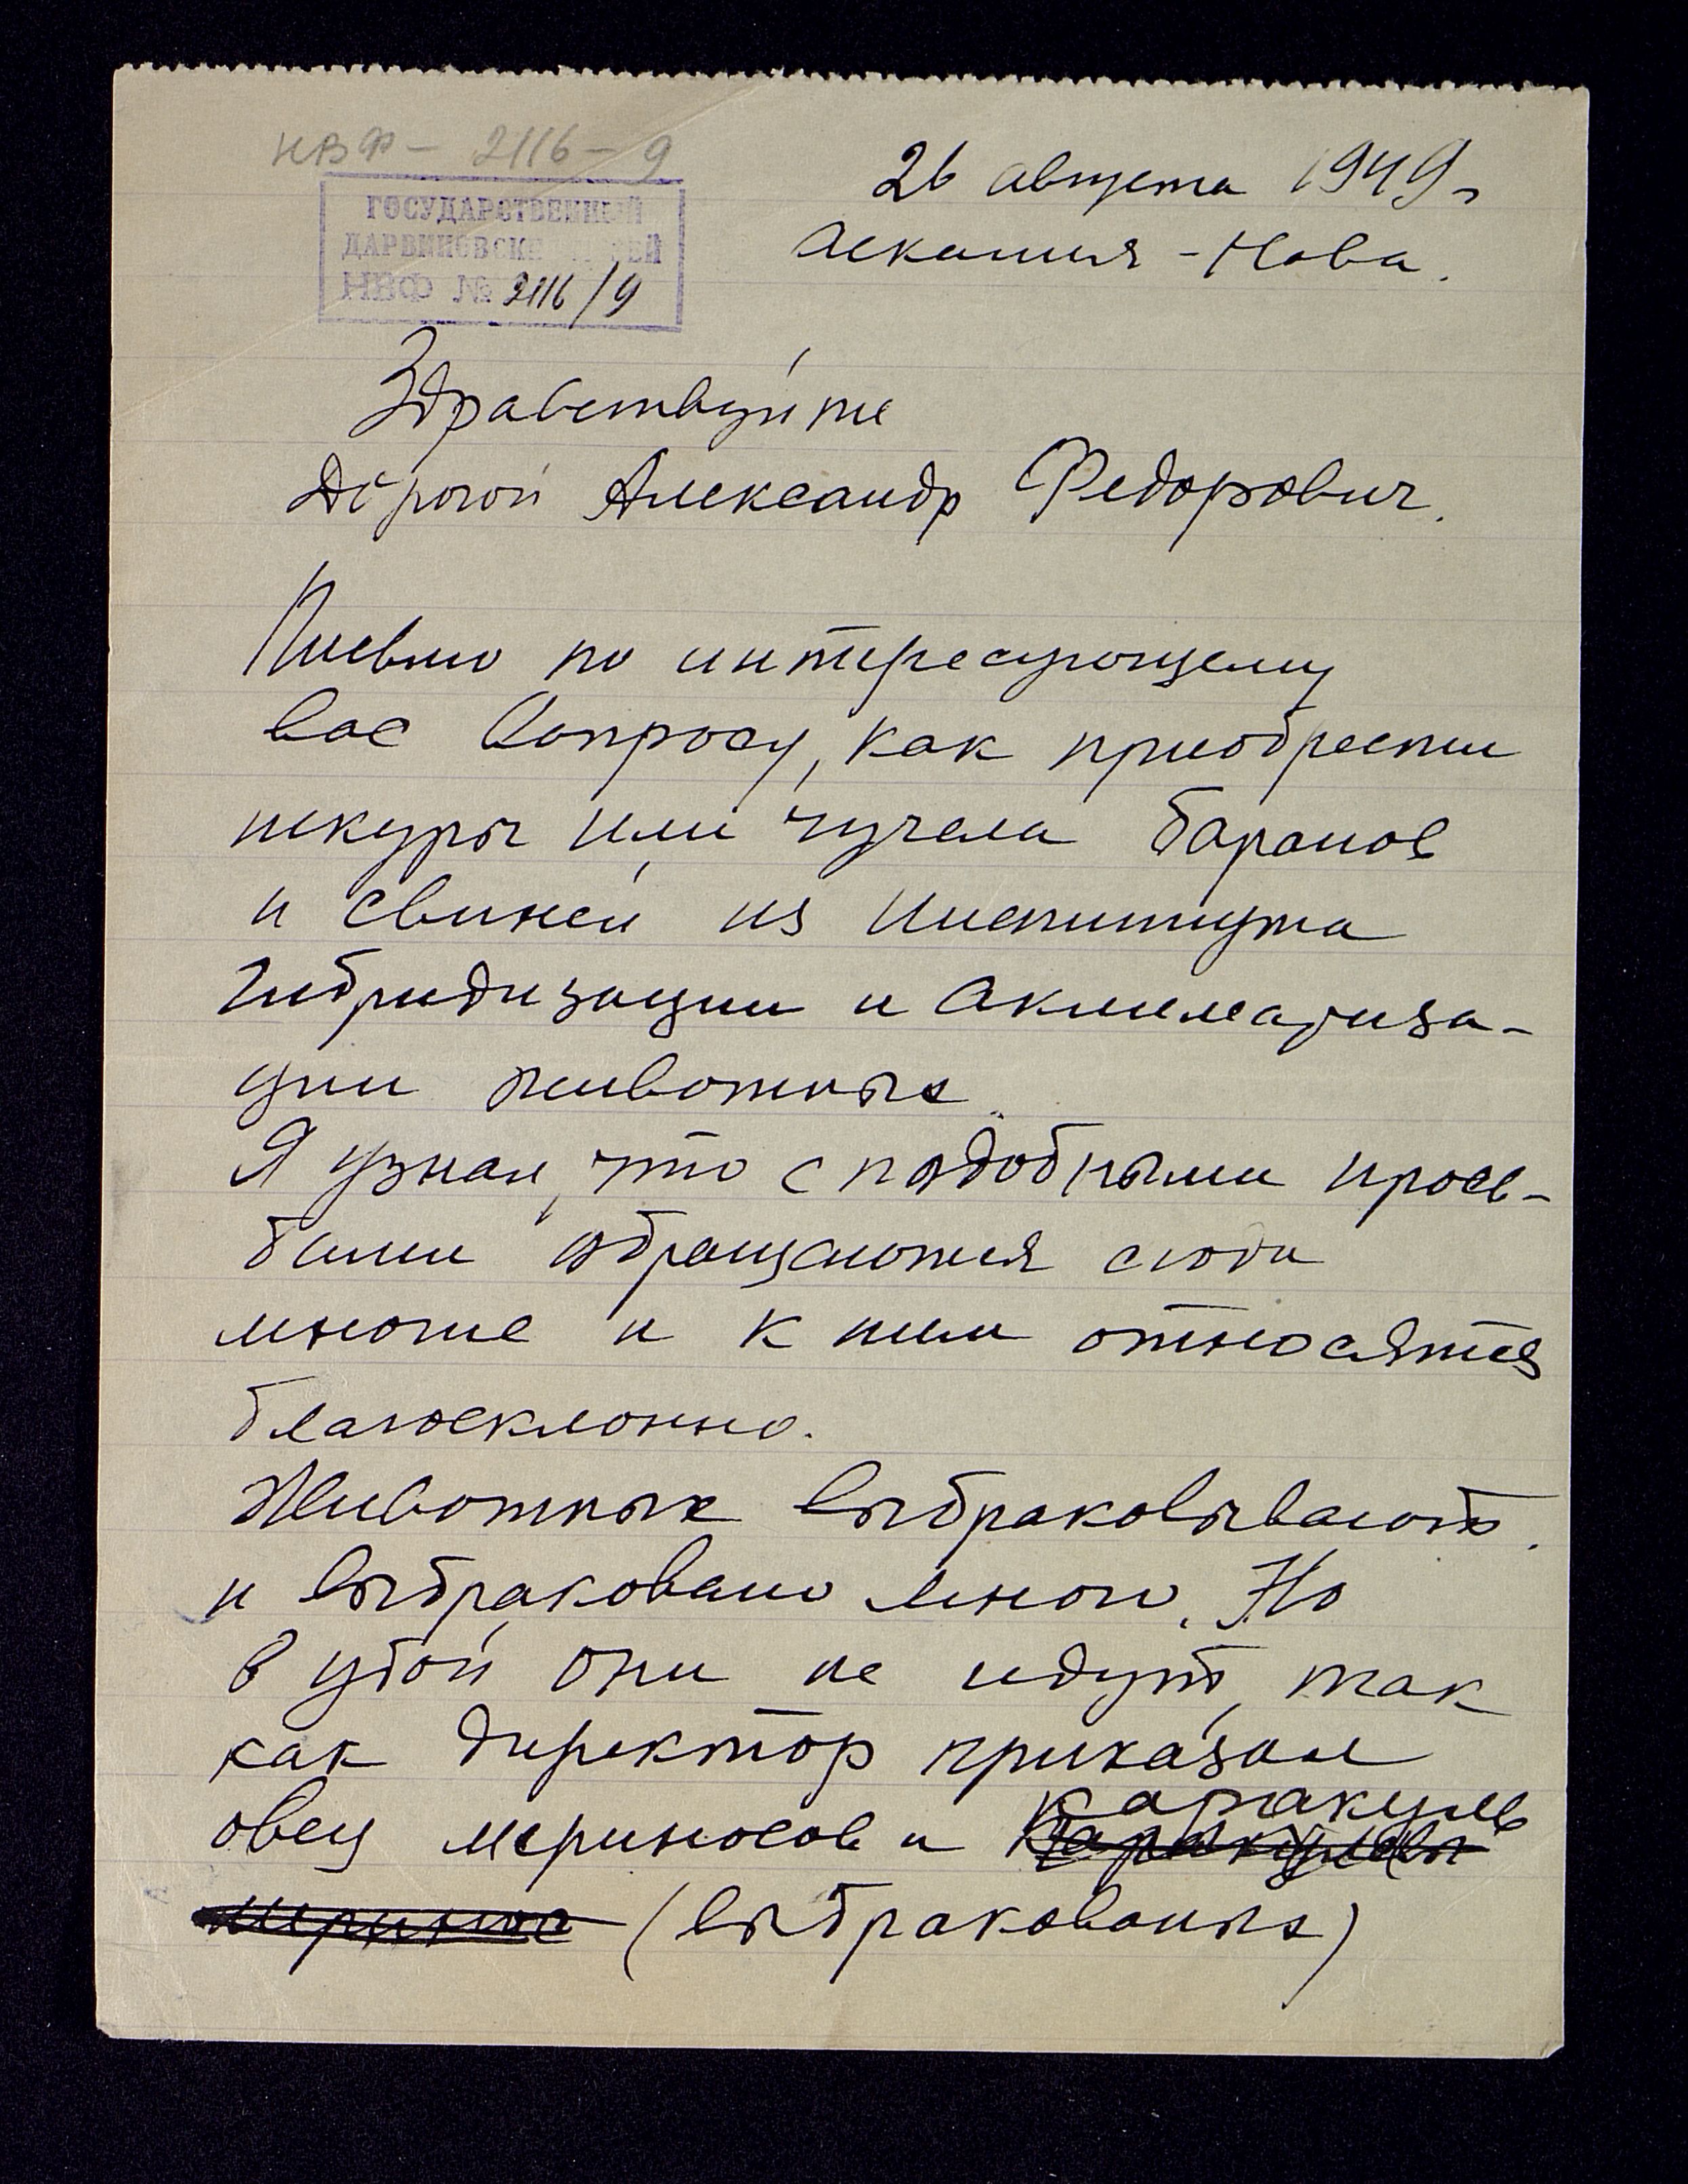 НВФ – 2116 – 9
ГОСУДАРСТВЕННЫЙ
ДАРВИНОВСКИЙ МУЗЕЙ
НВФ № 2116/9
26 августа 1949 г
Аскания-Нова.
Здравствуйте
Дорогой Александр Федорович.
Письмо по интересующему
вас вопросу, как приобрести
шкуры или чучела баранов
и свиней из Института
Гибридизации и Акклиматиза-
ции животных.
Я узнал, что с подобными прось-
бами обращаются сюда
многие и к ним относятся
благосклонно.
Животных выбраковывают.
и выбраковано много. Но
в убой они не идут, так
как директор приказал
овец мериносов и каракуль
(выбракованых)